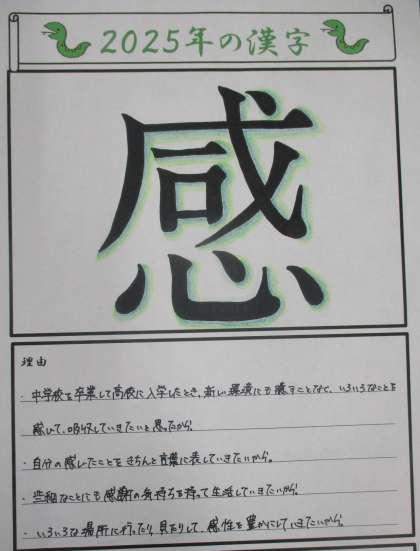 2025年の漢字
感
理由
・中学校を卒業して高校に入学したとき、新しい環境にも臆すことなく、いろいろなことを
感じて、吸収していきたいと思ったから。
・自分の感じたことをきちんと言葉に表していきたいから。
・些細なことにも感謝の気持ちを持って生活していきたいから。
・いろいろな場所に行ったり、見たりして、感性を豊かにしていきたいから。